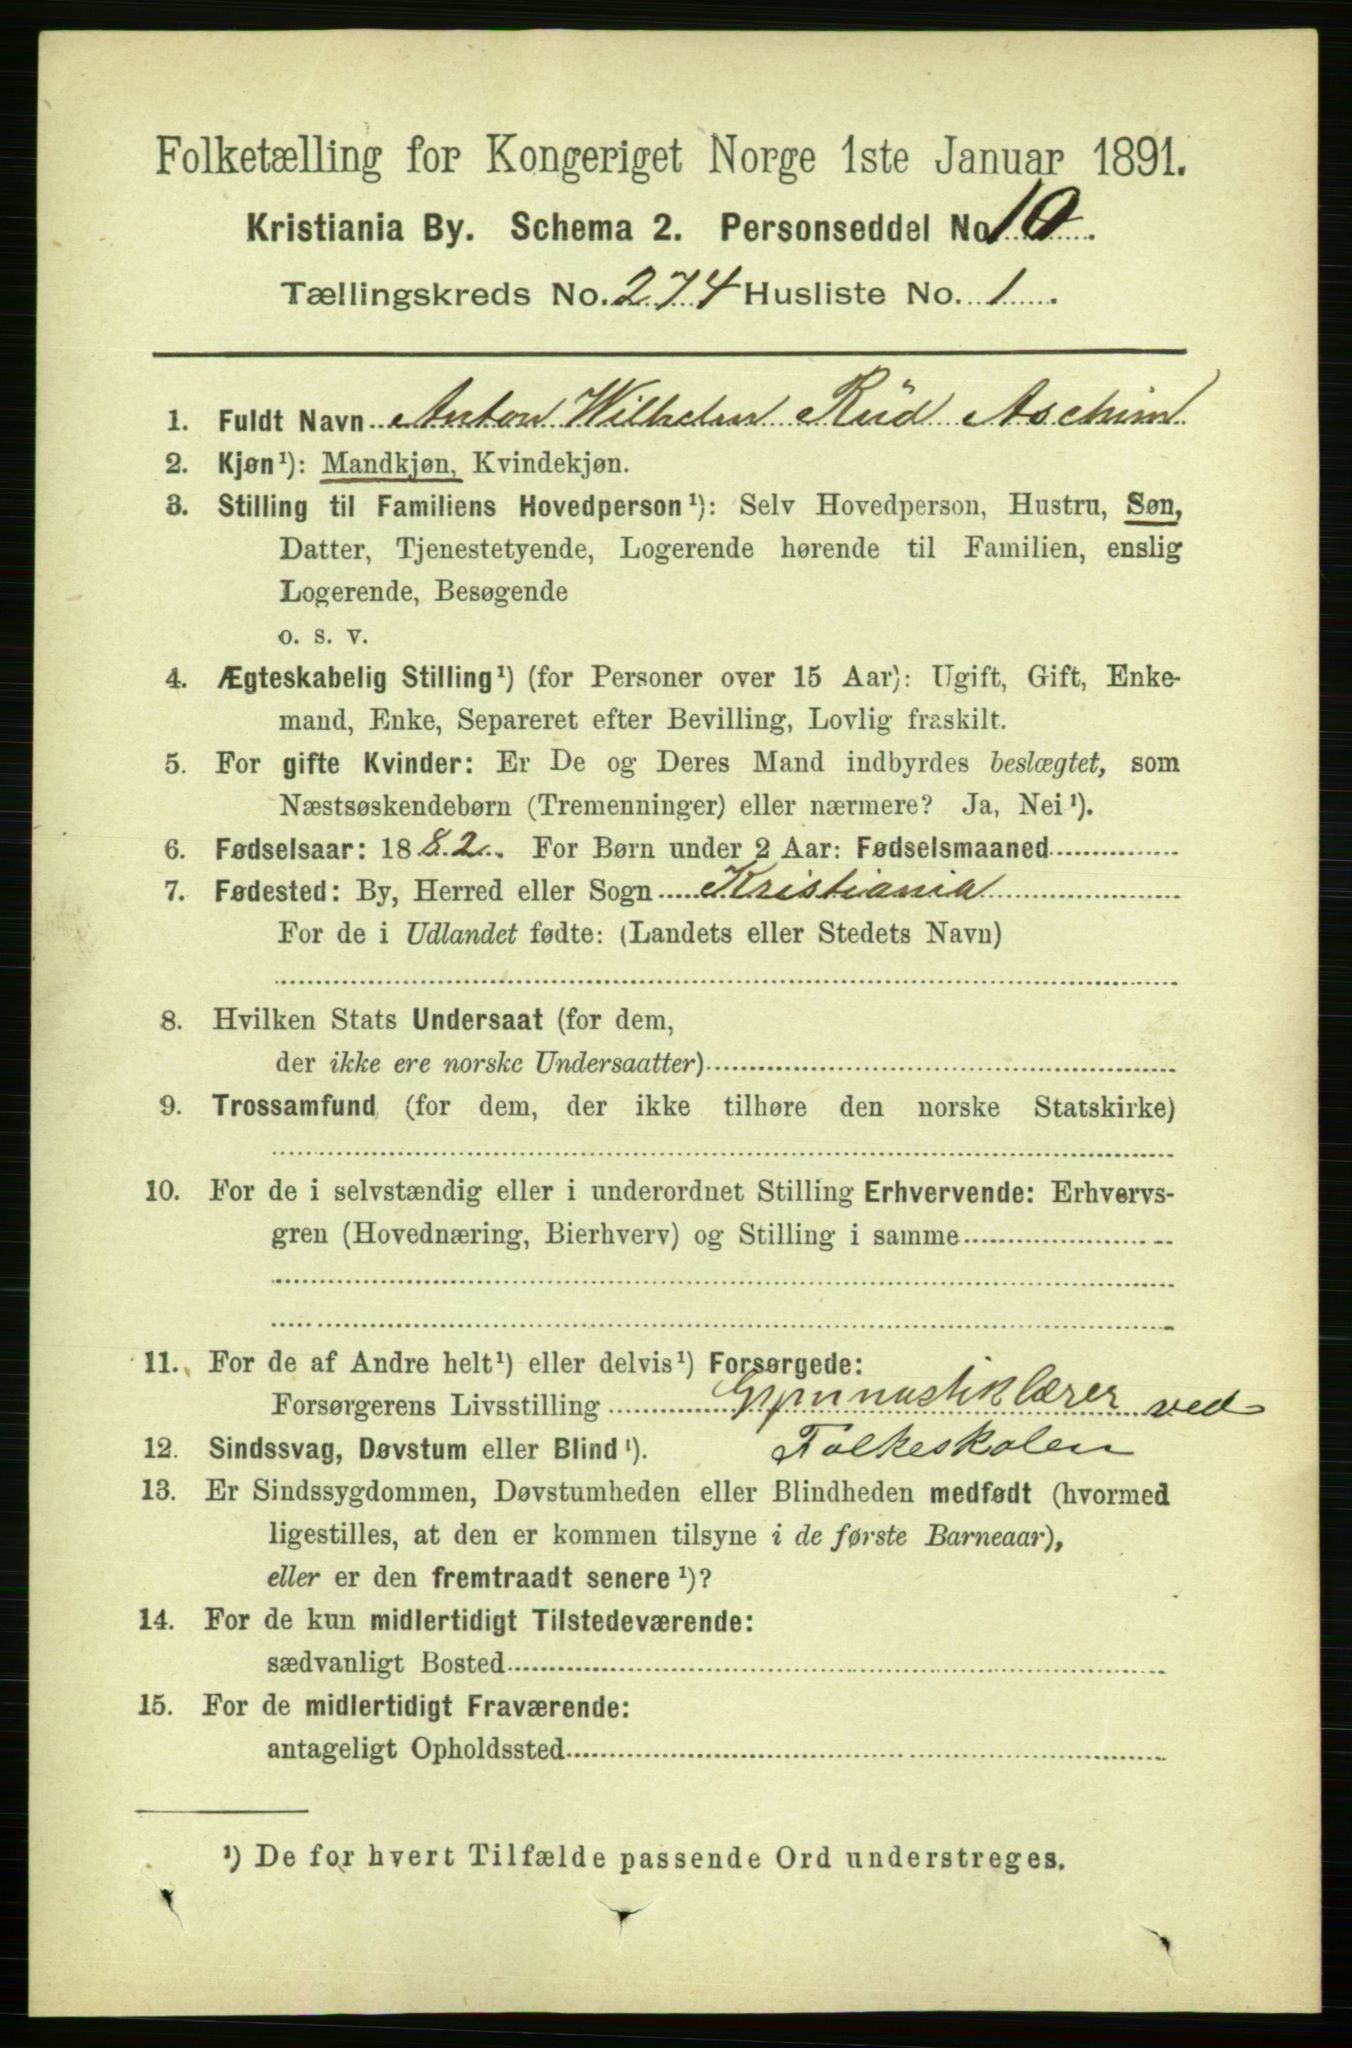 Folketælling for Kongeriget Norge 1ste Januar 1891.
Kristiania By. Schema 2. Personseddel No 10.
Tællingskreds No. 274 Husliste No. 1.
1. Fuldt Navn Anton Wilhelm Rüd Aschim
2. Kjøn¹): Mandkjøn, Kvindekjøn.
3. Stilling til Familiens Hovedperson¹): Selv Hovedperson, Hustru, Søn,
Datter, Tjenestetyende, Logerende hørende til Familien, enslig
Logerende, Besøgende
o. s. v.
4. Ægteskabelig Stilling¹) (for Personer over 15 Aar): Ugift, Gift, Enke-
mand, Enke, Separeret efter Bevilling, Lovlig fraskilt.
5. For gifte Kvinder: Er De og Deres Mand indbyrdes beslægtet, som
Næstsøskendebørn (Tremenninger) eller nærmere? Ja, Nei¹).
6. Fødselsaar: 1882. For Børn under 2 Aar: Fødselsmaaned
7. Fødested: By, Herred eller Sogn Kristiania
For de i Udlandet fødte: (Landets eller Stedets Navn)
8. Hvilken Stats Undersaat (for dem,
der ikke ere norske Undersaatter)
9. Trossamfund (for dem, der ikke tilhøre den norske Statskirke)
10. For de i selvstændig eller i underordnet Stilling Erhvervende: Erhvervs-
gren (Hovednæring, Bierhverv) og Stilling i samme
11. For de af Andre helt¹) eller delvis¹) Forsørgede:
Forsørgerens Livsstilling Gymnastiklærer ved
12. Sindssvag, Døvstum eller Blind¹). Folkeskolen
13. Er Sindssygdommen, Døvstumheden eller Blindheden medfødt (hvormed
ligestilles, at den er kommen tilsyne i de første Barneaar),
eller er den fremtraadt senere¹)?
14. For de kun midlertidigt Tilstedeværende:
sædvanligt Bosted
15. For de midlertidigt Fraværende:
antageligt Opholdssted
¹) De for hvert Tilfælde passende Ord understreges.